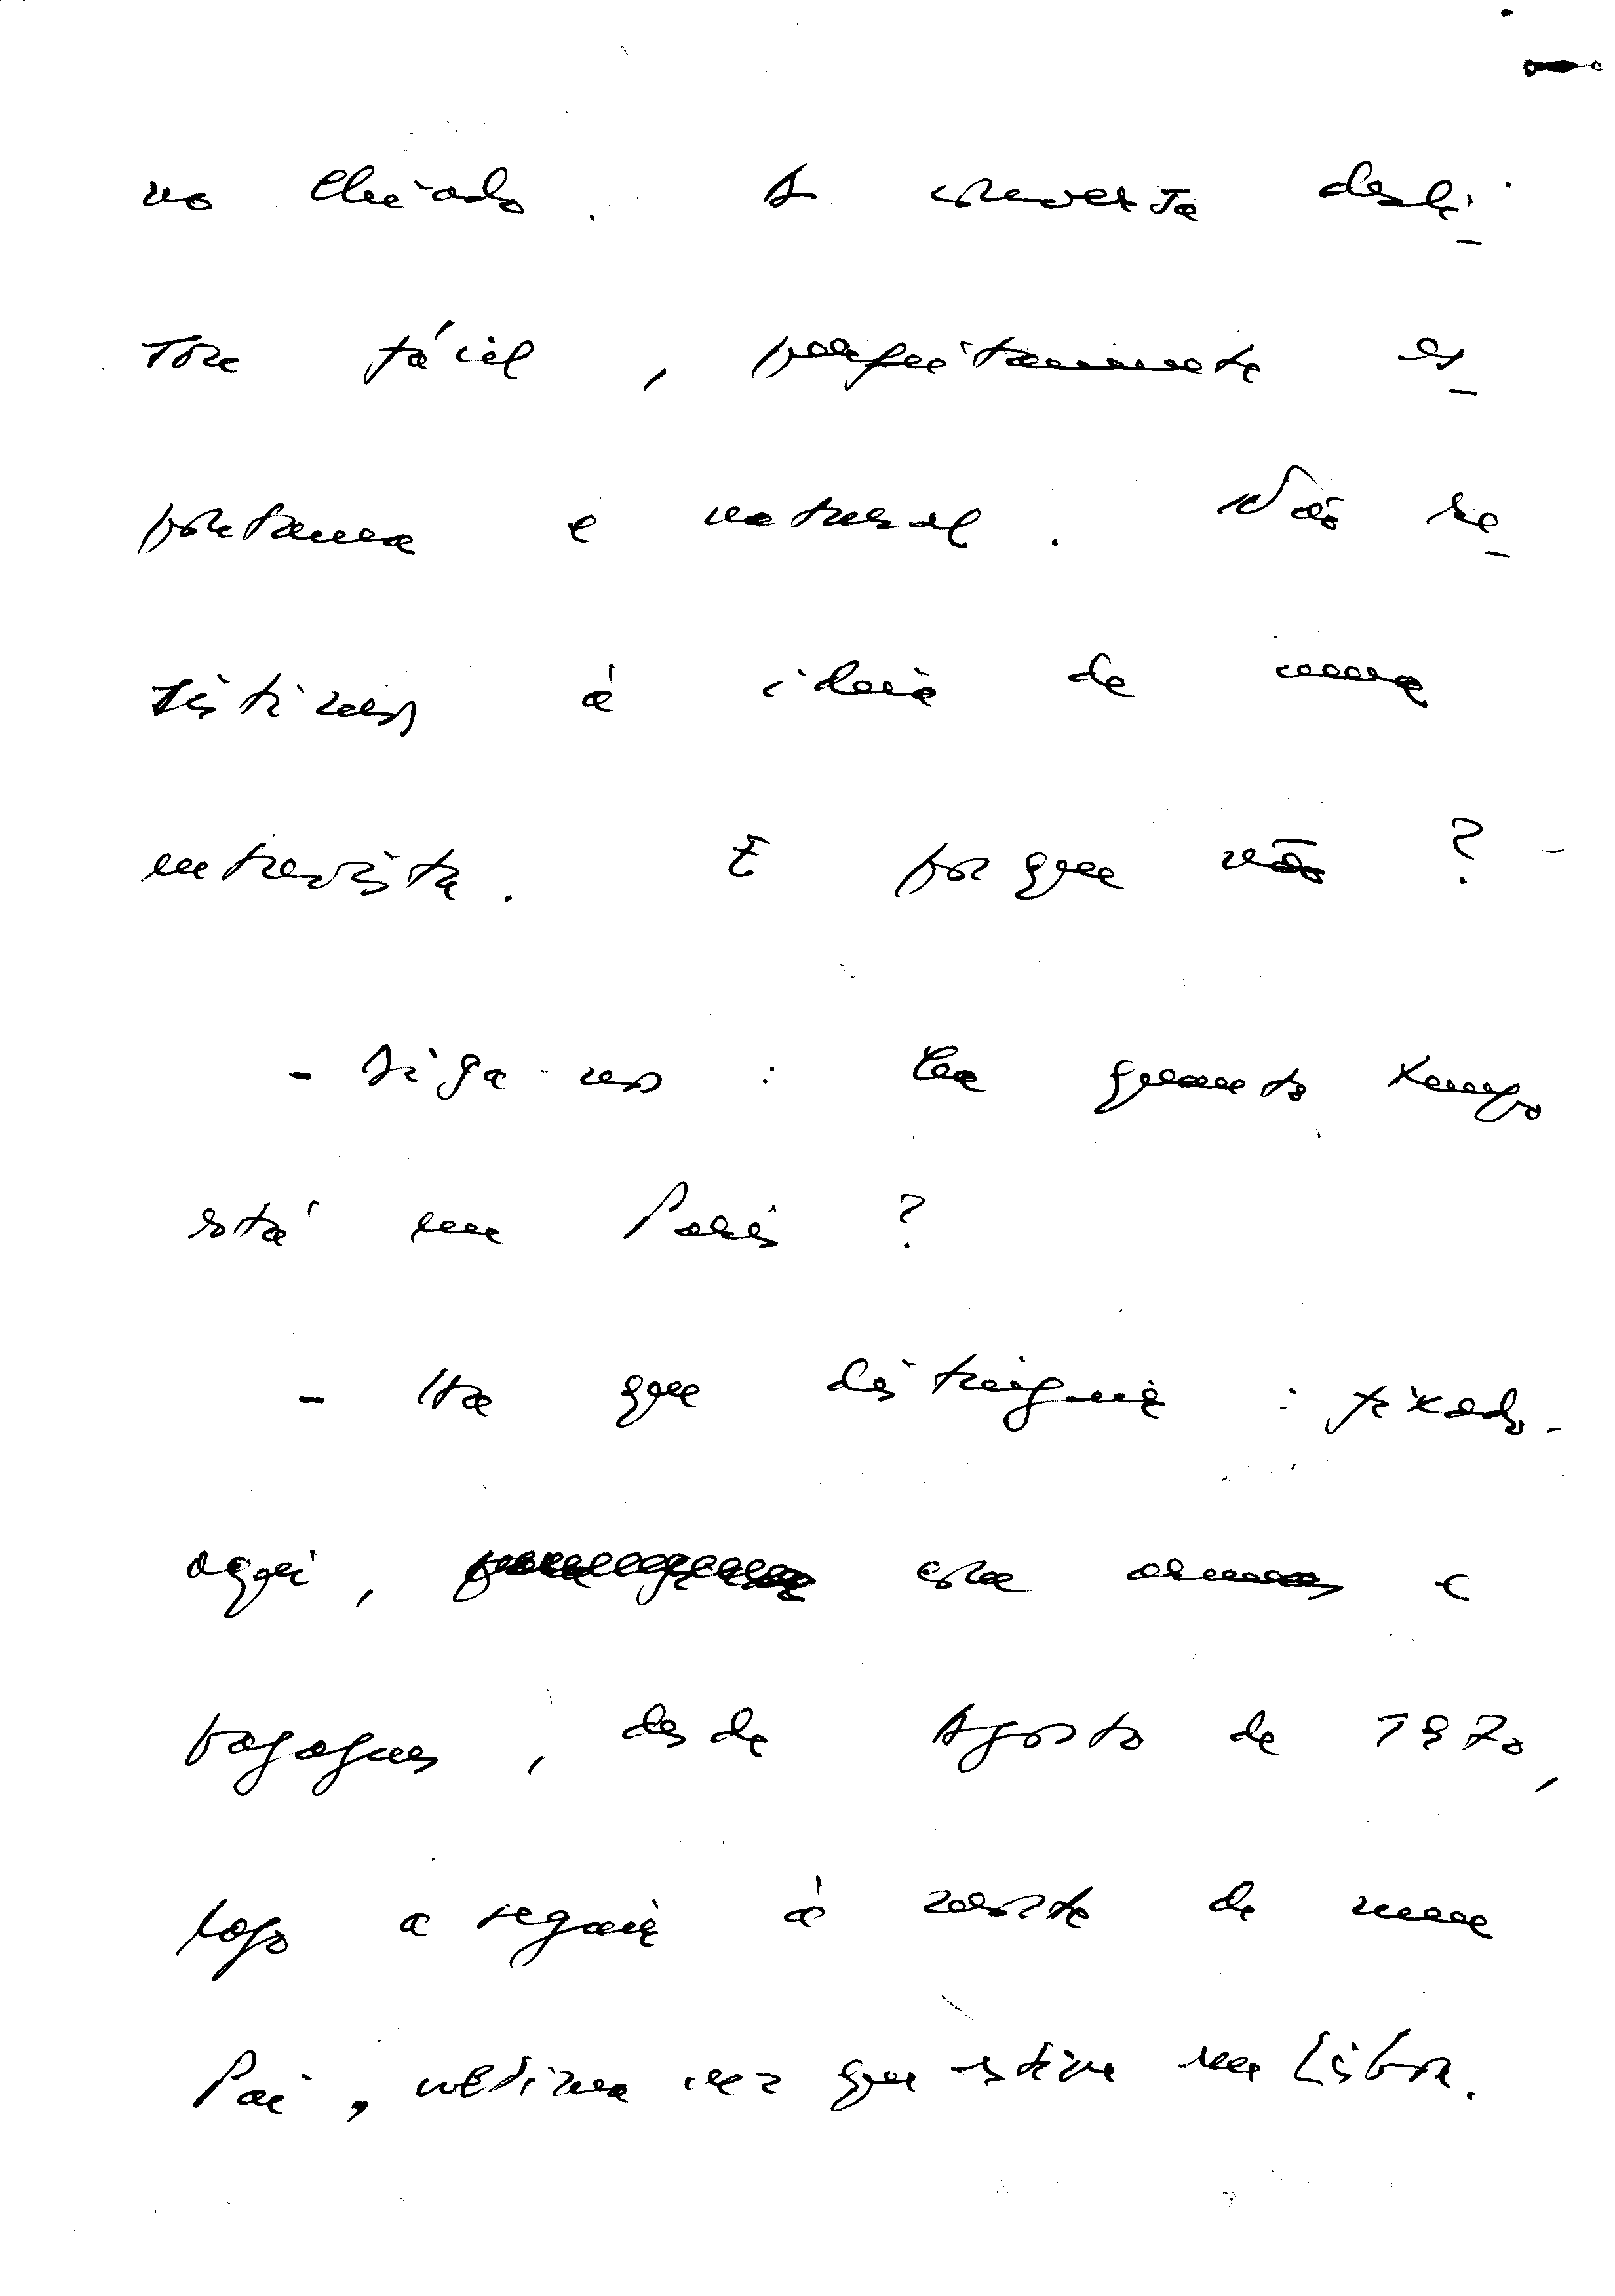 no Chiado. A conversa desli-
zou fácil, perfeitamente es-
pontanea e natural. Não re-
sistimos à ideia de uma
entrevista. E porque não? -
- Diga-nos: há quanto tempo
está em Paris?
- Há que distinguir: fixado
aqui, com armas e
bagagens, desde Agosto de 1970,
logo a seguir à morte de meu
Pai, ultima vez que estive em Lisboa.